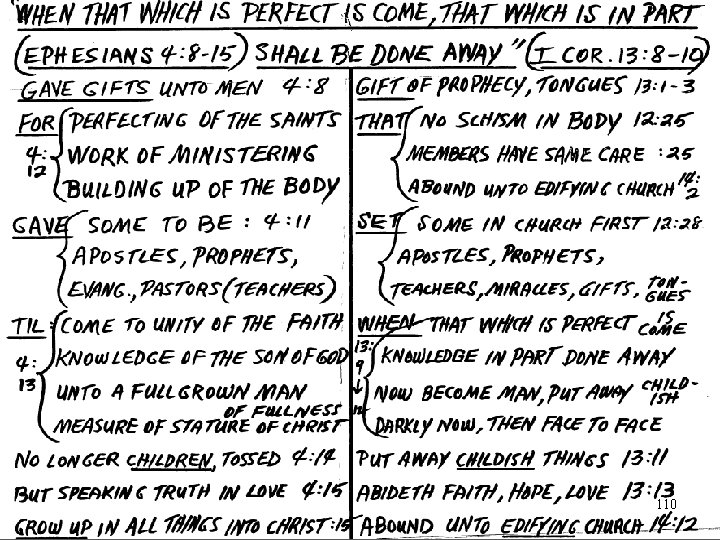 "WHEN THAT WHICH IS PERFECT IS COME, THAT WHICH IS IN PART
(EPHESIANS 4:8-15) SHALL BE DONE AWAY" (I COR. 13:8-10)
GAVE GIFTS UNTO MEN 4:8
FOR PERFECTING OF THE SAINTS
4:12 WORK OF MINISTERING
BUILDING UP OF THE BODY
GAVE SOME TO BE: 4:11
APOSTLES, PROPHETS,
EVANG., PASTORS (TEACHERS)
TIL: COME TO UNITY OF THE FAITH
4:13 KNOWLEDGE OF THE SON OF GOD
UNTO A FULLGROWN MAN
MEASURE OF STATURE OF FULLNESS OF CHRIST
NO LONGER CHILDREN, TOSSED 4:14
BUT SPEAKING TRUTH IN LOVE 4:15
GROW UP IN ALL THINGS INTO CHRIST :15
GIFT OF PROPHECY, TONGUES 13:1-3
THAT NO SCHISM IN BODY 12:25
MEMBERS HAVE SAME CARE :25
ABOUND UNTO EDIFYING CHURCH 14:2
SET SOME IN CHURCH FIRST 12:28
APOSTLES, PROPHETS,
TEACHERS, MIRACLES, GIFTS, TONGUES
WHEN THAT WHICH IS PERFECT IS COME
13:9 ↓ 12 KNOWLEDGE IN PART DONE AWAY
NOW BECOME MAN, PUT AWAY CHILDISH
DARKLY NOW, THEN FACE TO FACE
PUT AWAY CHILDISH THINGS 13:11
ABIDETH FAITH, HOPE, LOVE 13:13
ABOUND UNTO EDIFYING CHURCH 14:12
110